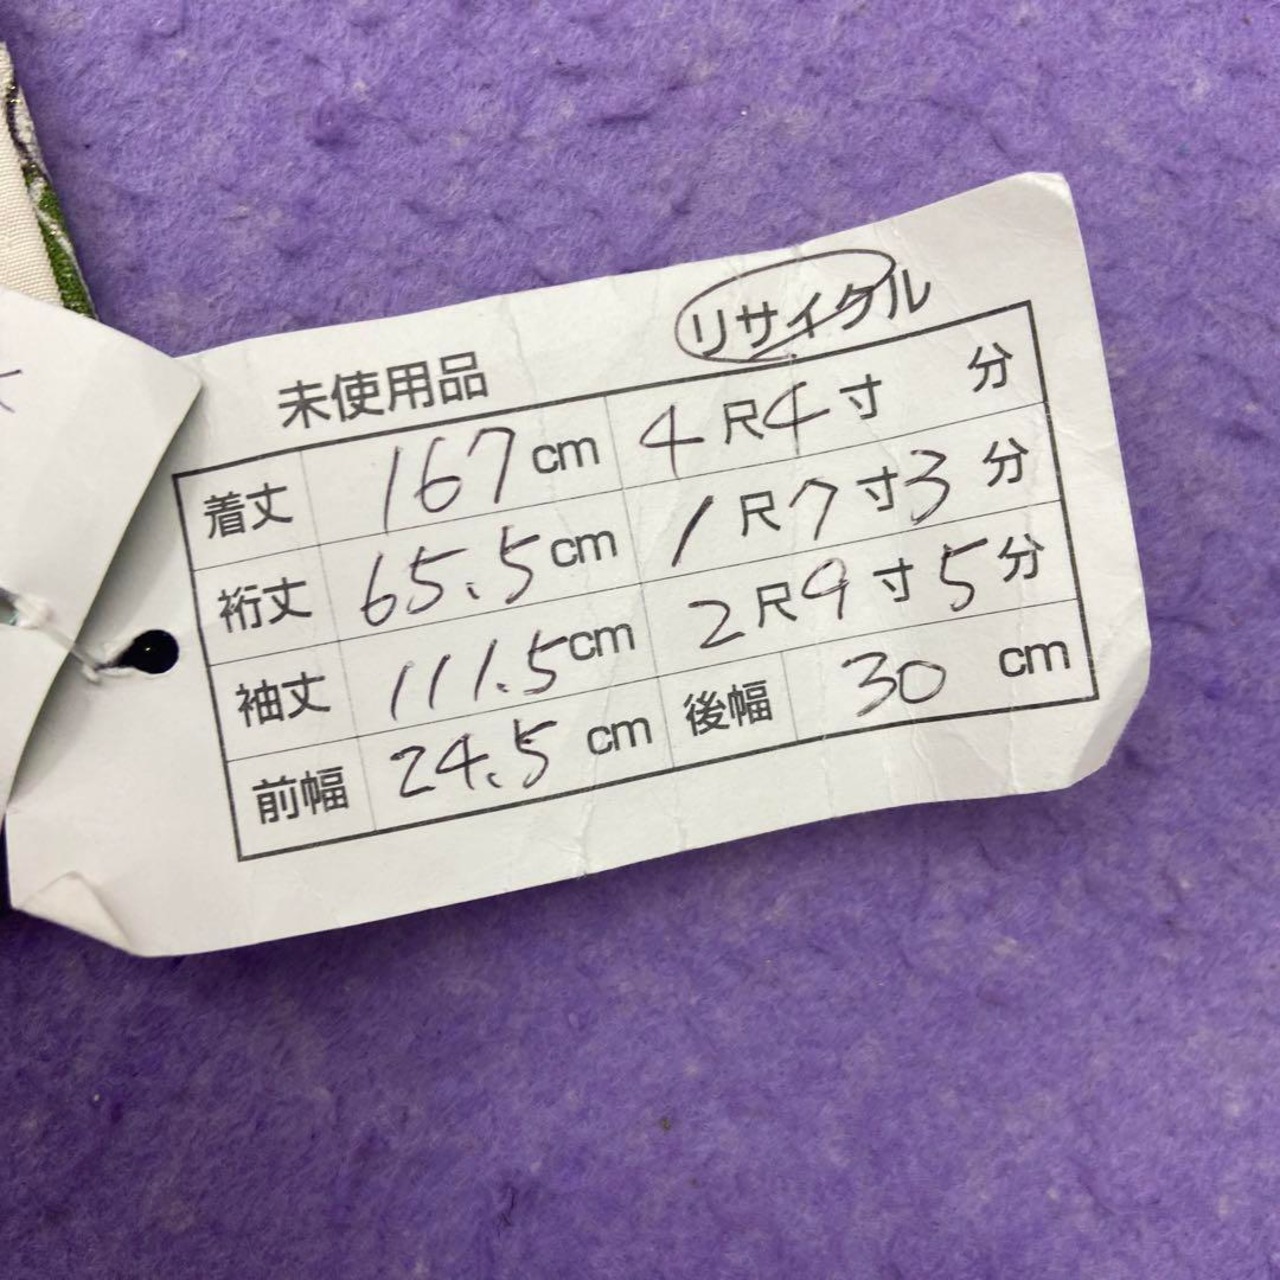 未使用品 リサイクル
着丈 167cm 4尺4寸 分
裄丈 65.5cm 1尺7寸3分
袖丈 111.5cm 2尺9寸5分
前幅 24.5cm 後幅 30cm